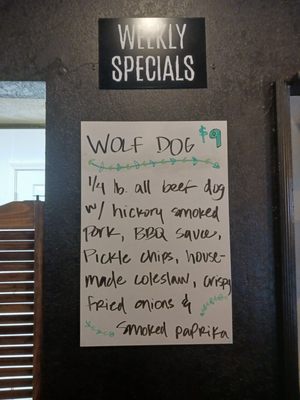 WEEKLY
SPECIALS
WOLF DOG $9
1/4 lb. all beef dog
w/ hickory smoked
pork, BBQ sauce,
Pickle chips, house-
made coleslaw, crispy
fried onions &
smoked paprika